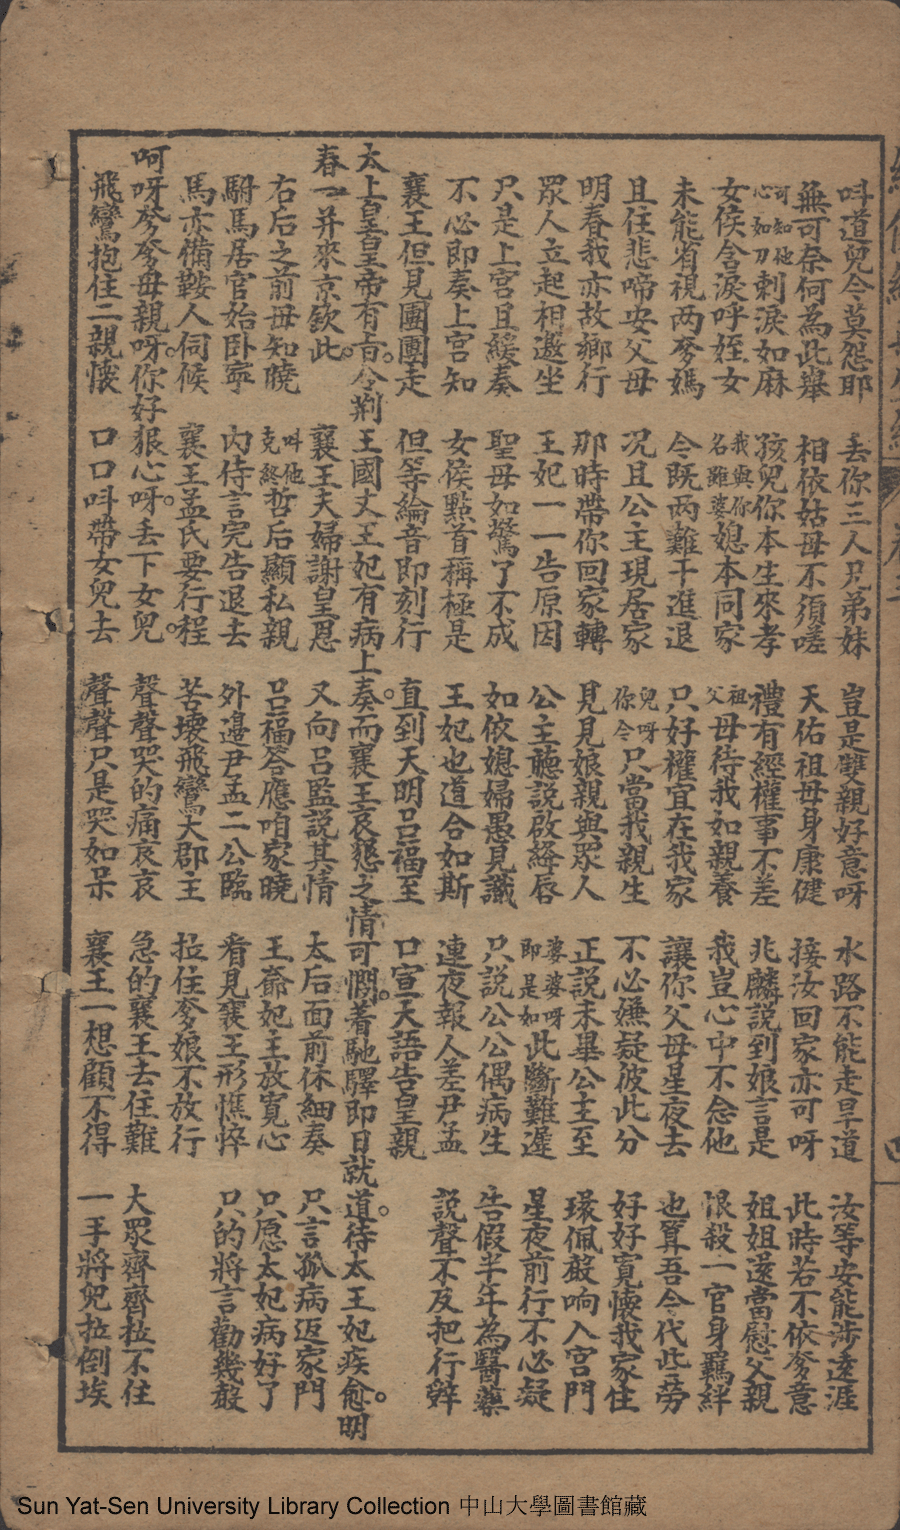 呌道兒今莫怨耶　丢你三人兄弟妹　豈是雙親好意呀　水路不能走旱道　汝等安能涉遠涯
無可奈何為此舉　相依姑母不須嗟　天佑祖母身康健　接汝回家亦可呀　此時若不依爹意
可知他心如刀刺淚如麻　孩兒你本生來孝　禮有經權事不差　兆麟説到娘言是　姐姐還當慰父親
女侯含淚呼姪女　我與你名雖婆媳本同家　祖父母待我如親養　我豈心中不念他　恨殺一官身羈絆
未能省視両爹媽　令既両難干進退　只好權宜在我家　讓你父母星夜去　也算吾今代些勞
且住悲啼安父母　况且公主現居家　兒呀你今只當我親生　不必嫌疑彼此分　好好寛懷我家住
明春我亦故鄉行　那時帶你回家轉　見見娘親與眾人　正説未畢公主至　環佩敲响入宫門
眾人立起相邀坐　王妃一一告原因　公主聽説啟絳唇　婆婆呀即是如此斷難遲　星夜前行不必疑
只是上宫且緩奏　聖母如驚了不成　如依媳婦愚見識　只説公公偶病生　告假半年為醫藥
不必即奏上宫知　女侯點首稱極是　王妃也道合如斯　連夜報人差尹孟　説聲不及把行辭
襄王但見團團走　但等綸音即刻行　直到天明吕福至　口宣天語告皇親
太上皇皇帝有旨。令荆王國丈王妃有病上奏。而襄王哀懇之情可憫。著馳驛即日就道。待太王妃疾愈。明
春一并來京欽此。　襄王夫婦謝皇恩　又向吕監説其情　太后面前休細奏　只言孤病返家門
右后之前毋知曉　呌他克終哲后顯私親　吕福答應咱家曉　王爺妃主放寛心　只愿太妃病好了
駙馬居官始卧寧　内侍言完告退去　外邉尹孟二公臨　看見襄王形憔悴　只的將言勸幾聲
馬亦備鞍人伺候　襄王孟氏要行程　苦壞飛鸞大郡主　拉住爹娘不放行
呵呀爹爹母親呀。你好狠心呀。丢下女兒。　聲聲哭的痛哀哀　急的襄王去住難　大眾齊齊拉不住
飛鸞抱住二親懷　口口呌帶女兒去　聲聲只是哭如呆　襄王一想顧不得　一手將兒拉倒埃
卷三
四
Sun Yat-Sen University Library Collection 中山大學圖書館藏